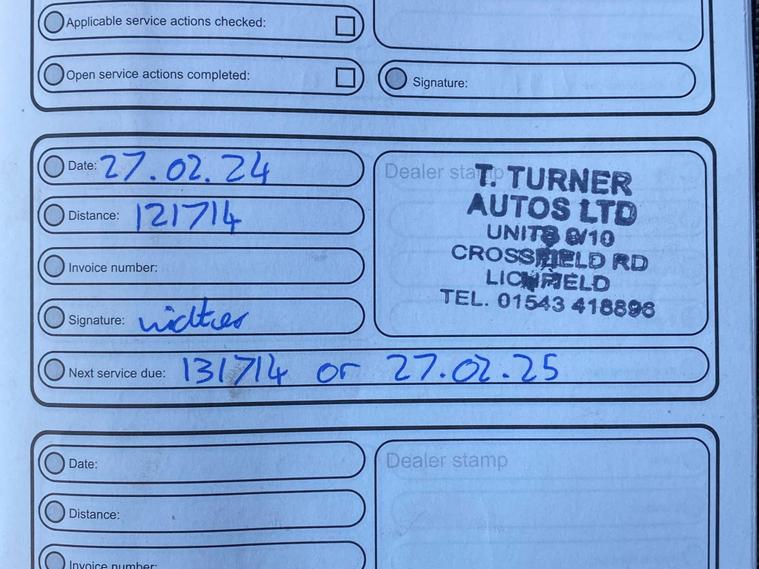 Applicable service actions checked:
Open service actions completed:
Signature:
Date: 27.02.24
Distance: 121714
Invoice number:
Signature:
Next service due: 131714 or 27.02.25
Dealer stamp
T. TURNER
AUTOS LTD
UNITS 9/10
CROSSFIELD RD
LICHFIELD
TEL. 01543 418896
Date:
Distance:
Invoice number:
Dealer stamp